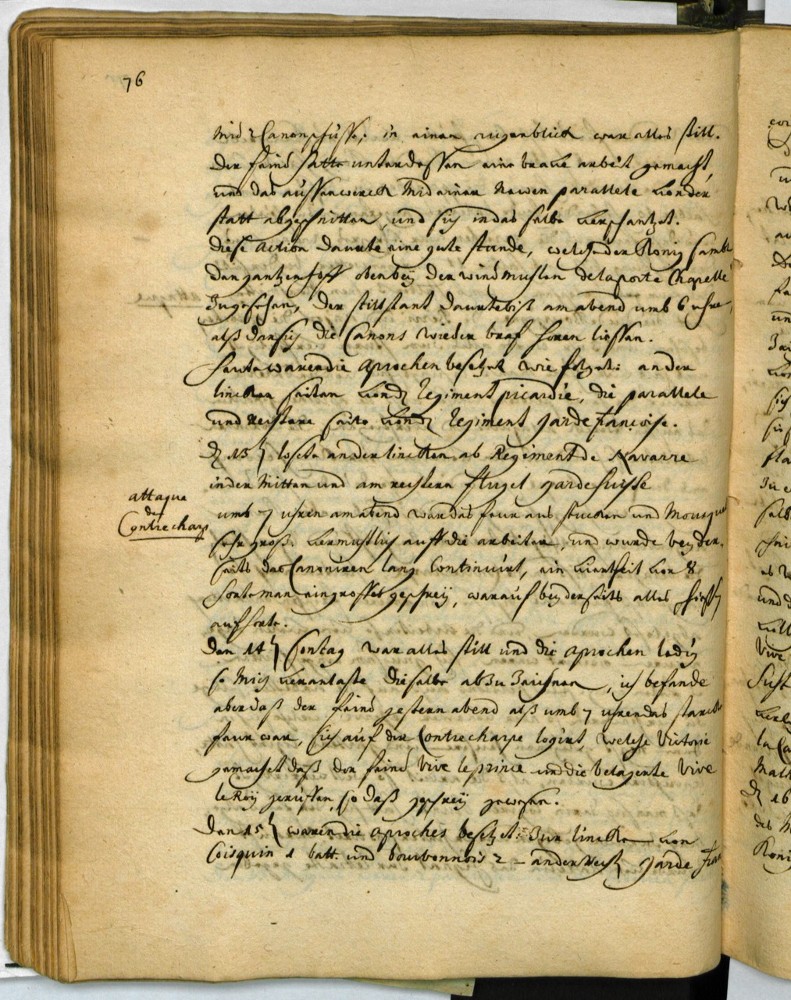 76
mid 2 Canonschüsse; in einem augenblick war alles still.
Der feind hatte unterdessen eine brave arbeit gemacht,
und das aussenwerck mid einer Newen parallele von der
statt abgeschnitten, und sich in das selbe verschantzt.
diese action daurte eine gute stunde, welche der König sambt
den gantzen hoff oben bey der windmühlen de la porte Chapelle
zugesehen, der stillstant daurte bis am abend umb 6 uhre,
alß dan sich die Canons wieder braf hören liessen.
Heute waren die aprochen besetzet wie folget: an der
lincken seiten von dem Regiment picardie, die parallele
und rechtere seite von dem Regiment garde françoise.
D 13 löste an der lincken ab Regiment de Navarre
in der mitten und am rechtern flügel garde suisse
attaque
der
Contrecharp
umb 7 uhren am abend war das feur aus stucken und Mousque
sehr groß. vermuthlich auff die arbeiter, und wurde beyder-
seits das Canoniren lang continuirt, ein viertheil vor 8
horte man ein grosses geschrey, warauf beyderseits alles schiessen
aufhörte.
Den 14 Sontag war alles still und die aprochen ledig
so mich veranlaste dieselbe abzuzeichnen, ich befande
aber daß der feind gestern abend alß umb 7 uhren das starcke
feur war, sich auf der Contrecharpe logirt, welche Victorie
gemacht daß der feind Vive le prince und die belagerte Vive
le Roy geruffen, so daß geschrey gewesen.
Den 15 waren die aproches besetzt: zur lincken von
Coisquin 1 batt. und bourbonnois 2 – an der recht garde fran